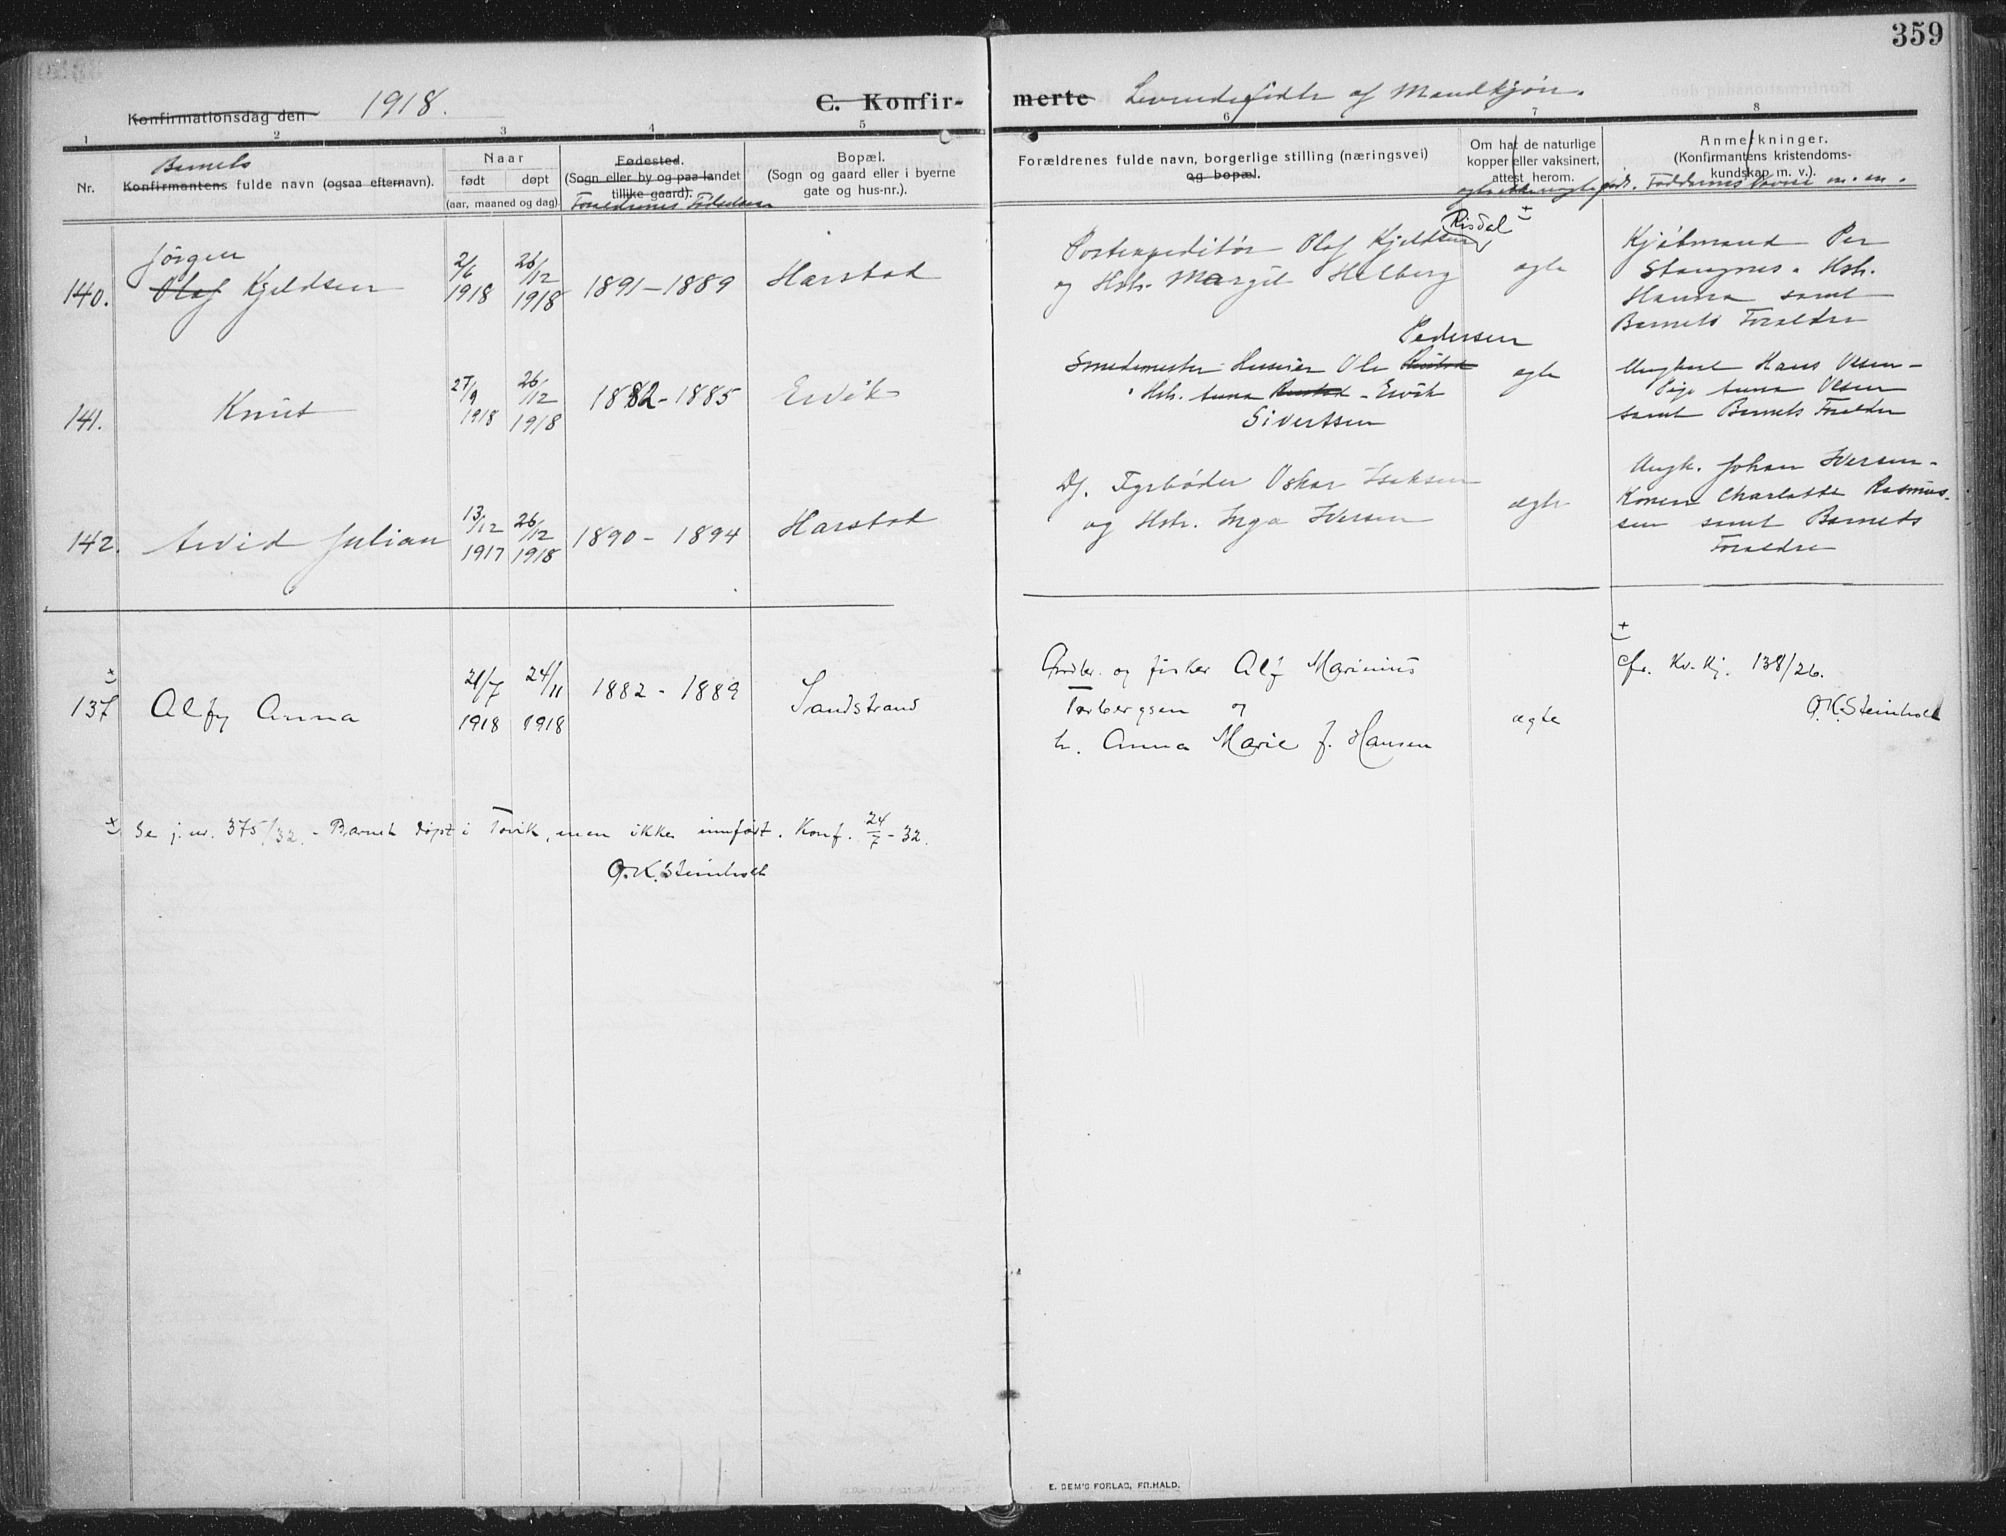 359
Konfirmationsdag den 1918. C. Konfir- merte Levendefødte af Mandkjøn.
1 2 3 4 5 6 7 8
Nr.
Barnets
Konfirmantens fulde navn (ogsaa efternavn).
Naar
født døpt
(aar, maaned og dag)
Fødested.
(Sogn eller by og paa landet
tillike gaard).
Forældrenes Fødselsaar
Bopæl.
(Sogn og gaard eller i byerne
gate og hus-nr.).
Forældrenes fulde navn, borgerlige stilling (næringsvei)
og bopæl.
Om hat de naturlige
kopper eller vaksinert,
attest herom.
Anmerkninger.
(Konfirmantens kristendoms-
kundskap m. v.).
Faddernes Navne m. m.
140.
Jørgen
Olaf Kjeldsen
2/6 1918
26/12 1918
1891-1889
Harstad
Risdal
Postexpeditør Olaf Kjeldsen
og Hstr. Margit Helberg
ægte
Kjøbmand Per
Stangnes. Hstr.
Hanna samt
Barnets Forældre
141.
Knut
27/9 1918
26/12 1918
1882-1885
Ervik
Pedersen
Smedemester Huseier Ole
Hstr. Anna - Ervik
Sivertsen
ægte
Ungkarl Hans Olsen -
Pige Anna Olsen
samt Barnets Forældre
142.
Arvid Julian
13/12 1917
26/12 1918
1890 - 1894
Harstad
Df. Fyrbøder Oskar Isaksen
og Hstr. Inga Iversen
ægte
Ungk. Johan Iversen -
Konen Charlotte Rasmus-
sen samt Barnets
Forældre
137
Alfy Anna
21/7 1918
24/11 1918
1882 - 1889
Sandstrand
Gardbr. og fisker Alf Marinius
Torbergsen og
h. Anna Marie f. Hansen
ægte
cfr. Kv. kj. 138/26.
O.K. Steinholt
Se j. nr. 375/32. - Barnet døpt i Tovik, men ikke innført. Konf. 24/7 - 32.
O.K. Steinholt
E. SEM'S FORLAG, FR.HALD.